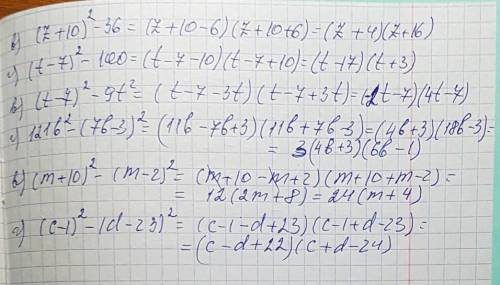 в) (z+10)²-36 = (z+10-6)(z+10+6)=(z+4)(z+16)
г) (t-7)²-100=(t-7-10)(t-7+10)=(t-17)(t+3)
в) (t-7)²-9t²= (t-7-3t)(t-7+3t)=(-2t-7)(4t-7)
г) 121b²-(7b-3)²=(11b-7b+3)(11b+7b-3)=(4b+3)(18b-3)=
= 3(4b+3)(6b-1)
в) (m+10)²-(m-2)²= (m+10-m+2)(m+10+m-2)=
= 12(2m+8)=24(m+4)
г) (c-1)²-(d-23)²= (c-1-d+23)(c-1+d-23)=
=(c-d+22)(c+d-24)